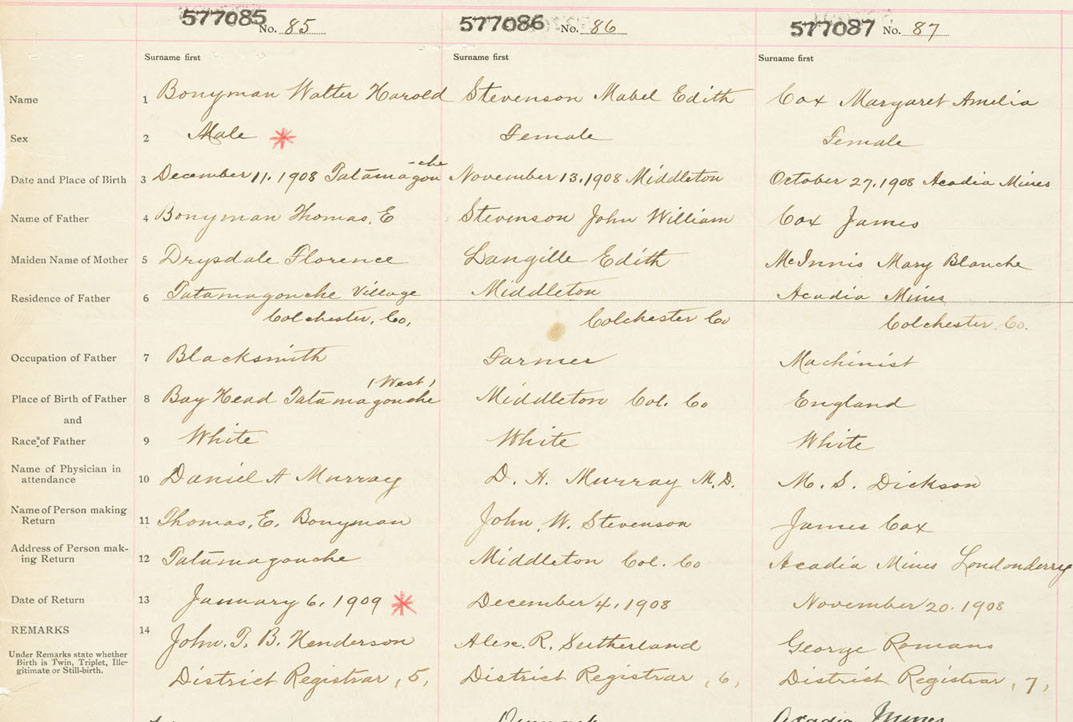 577085 No. 85 577086 No. 86 577087 No. 87
Surname first Surname first Surname first
Name 1 Bonyman Walter Harold Stevenson Mabel Edith Cox Margaret Amelia
Sex 2 Male * Female Female
-che
Date and Place of Birth 3 December 11. 1908 Tatamagou November 13. 1908 Middleton October 27. 1908 Acadia Mines
Name of Father 4 Bonyman Thomas, E Stevenson John William Cox James
Maiden Name of Mother 5 Drysdale Florence Langille Edith McInnis Mary Blanche
Residence of Father 6 Tatamagouche Village Middleton Acadia Mines
Colchester, Co, Colchester Co Colchester. Co.
Occupation of Father 7 Blacksmith Farmer Machinist
(West)
Place of Birth of Father 8 Bay Head Tatamagouche Middleton Col. Co England
and
Race* of Father 9 White White White
Name of Physician in
attendance 10 Daniel A Murray D. A. Murray M.D. M. S. Dickson
Name of Person making
Return 11 Thomas, E. Bonyman John, W. Stevenson James Cox
Address of Person mak-
ing Return 12 Tatamagouche Middleton Col. Co Acadia Mines Londonderry
Date of Return 13 January 6. 1909 * December 4, 1908 November 20. 1908
REMARKS 14 John, T. B. Henderson Alex. R. Sutherland George Romans
Under Remarks state whether
Birth is Twin, Triplet, Ille-
gitimate or Still-birth.
District Registrar, 5, District Registrar, 6, District Registrar, 7,
Acadia Mines